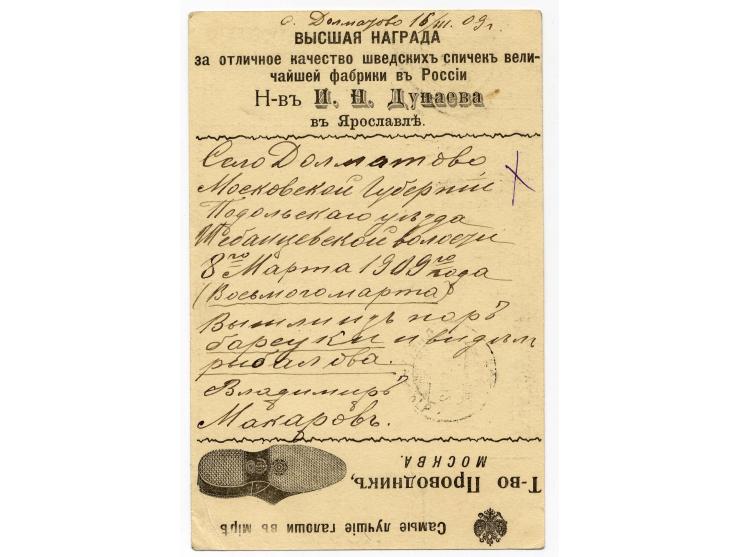 с. Долматово 15/III. 09 г.
ВЫСШАЯ НАГРАДА
за отличное качество шведскихъ спичекъ вели-
чайшей фабрики въ Россіи
Н-въ И. Н. Дунаева
въ Ярославлѣ.
Село Долматово
Московской Губерніи
Подольскаго уѣзда
Шебанцевской волости
8го Марта 1909го года
(Восьмого марта)
Вышли изъ норъ
барсуки и видѣли
рыбалова.
Владимиръ
Макаровъ.
Т-во Проводникъ,
МОСКВА.
Самые лучшіе галоши въ мірѣ